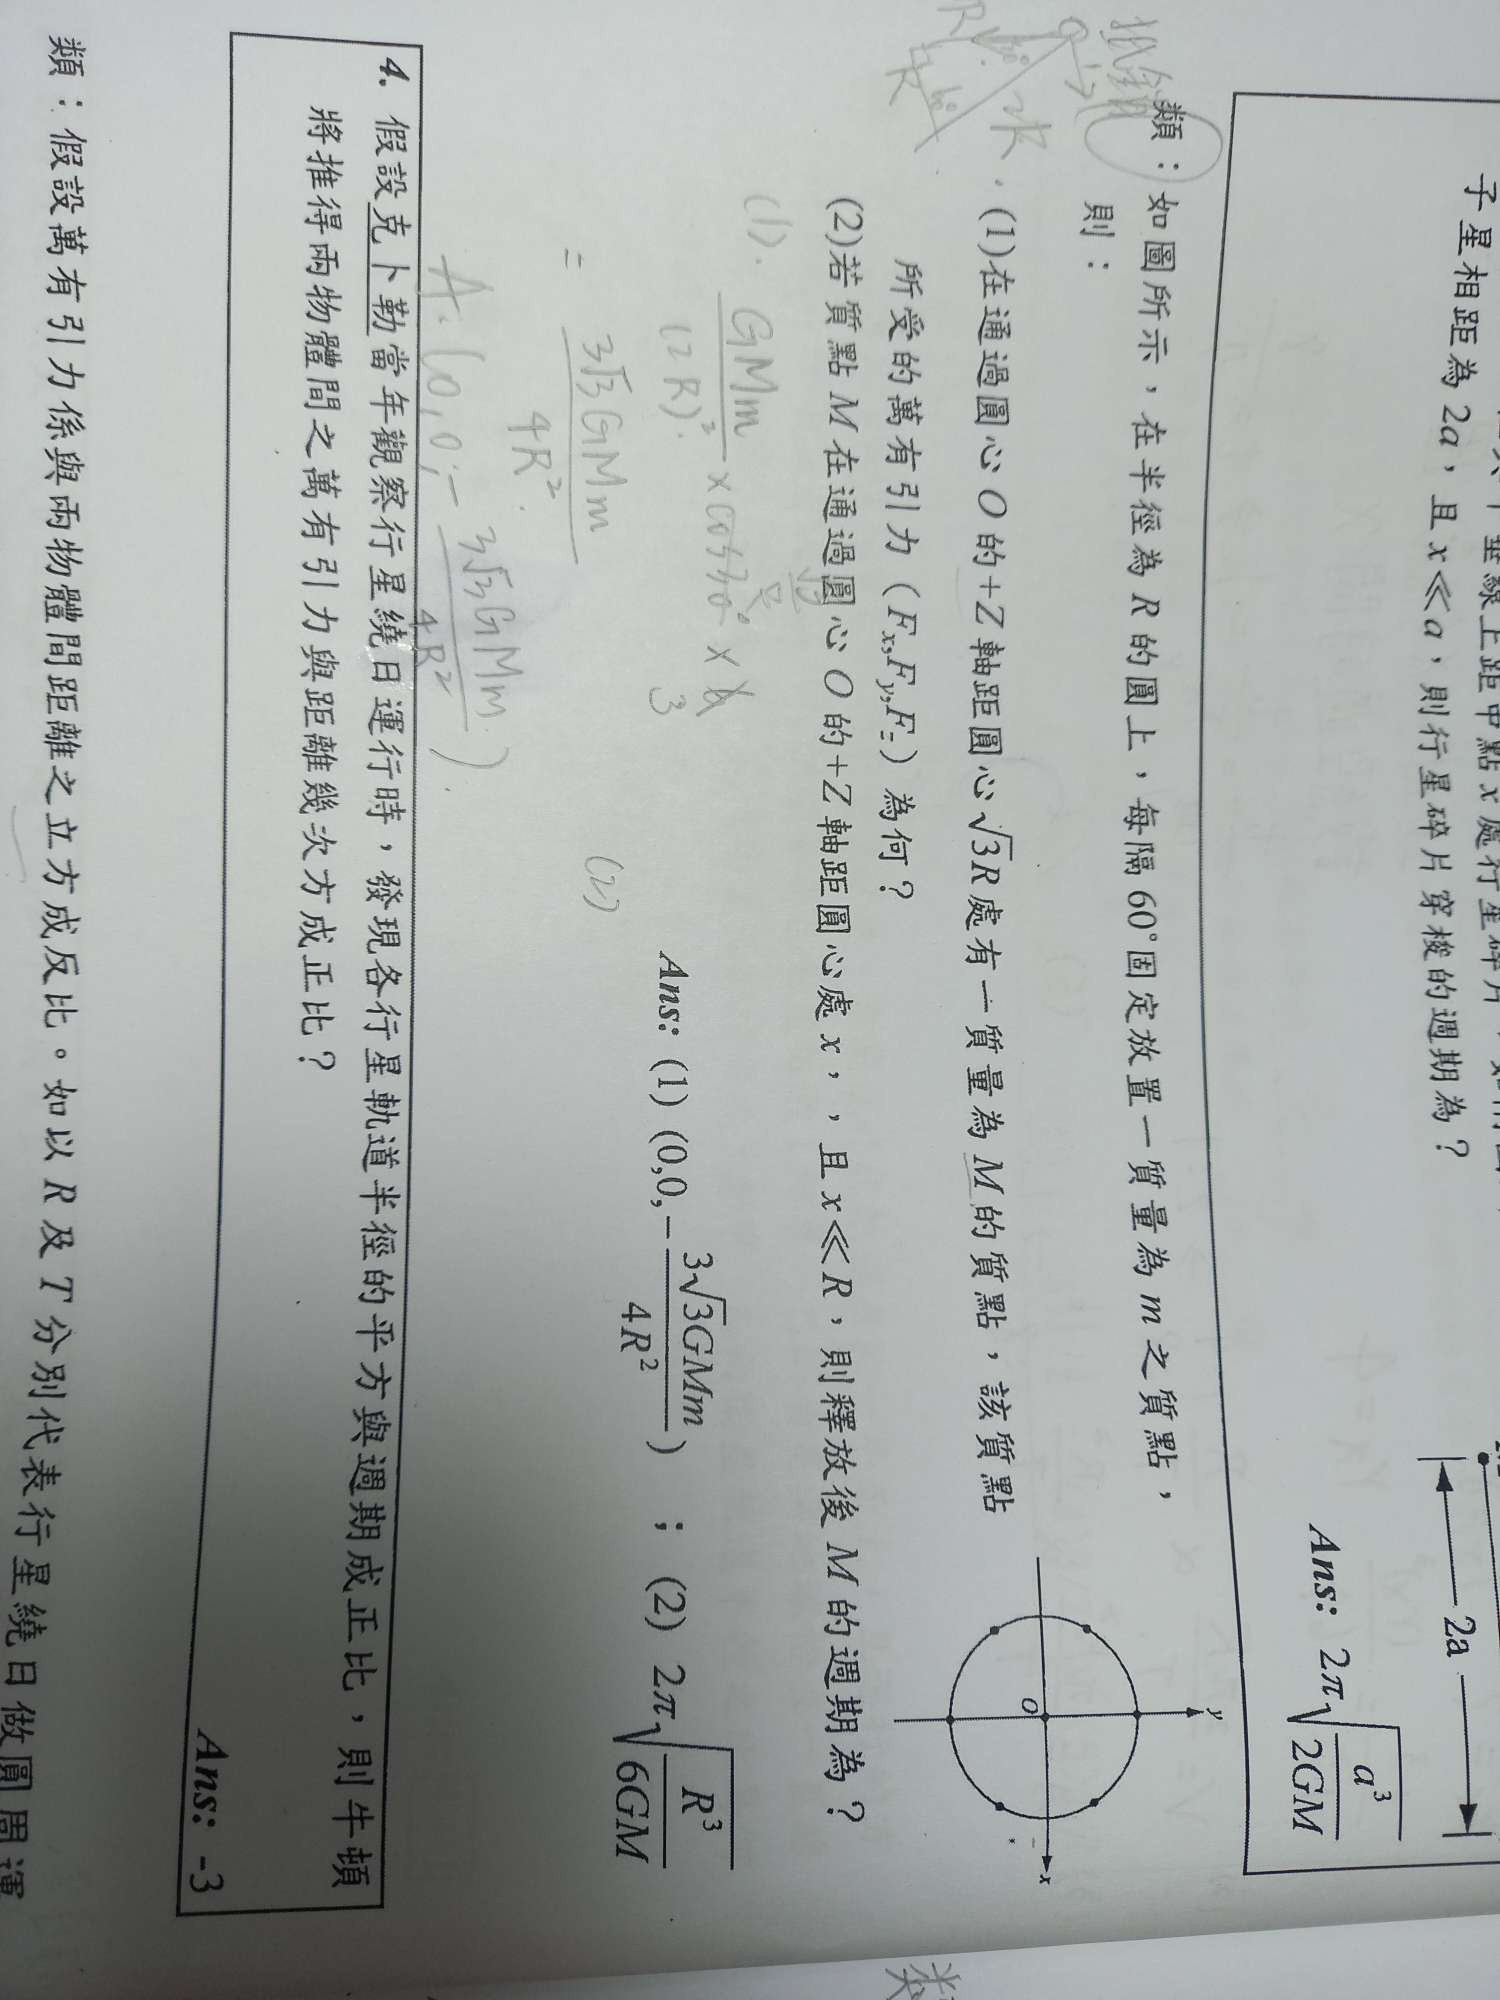 子星相距為 2a，且 x≪a，則行星碎片穿梭的週期為？
2a
Ans: 2π√(a³/2GM)
類：如圖所示，在半徑為 R 的圓上，每隔 60°固定放置一質量為 m 之質點，
則：
(1)在通過圓心 O 的+Z 軸距圓心√3R 處有一質量為 M 的質點，該質點
所受的萬有引力（Fx,Fy,Fz）為何？
(2)若質點 M 在通過圓心 O 的+Z 軸距圓心處 x，，且 x≪R，則釋放後 M 的週期為？
y
O
x
Ans: (1) (0,0,-3√3GMm/4R²) ； (2) 2π√(R³/6GM)
(1).
GMm/(2R)² × cos30° × 6
√3/2
3
= 3√3GMm/4R²
A. (0,0,-3√3GMm/4R²)
(2)
R
2R
R
4. 假設克卜勒當年觀察行星繞日運行時，發現各行星軌道半徑的平方與週期成正比，則牛頓
將推得兩物體間之萬有引力與距離幾次方成正比？
Ans: -3
類：假設萬有引力係與兩物體間距離之立方成反比。如以 R 及 T 分別代表行星繞日做圓周運